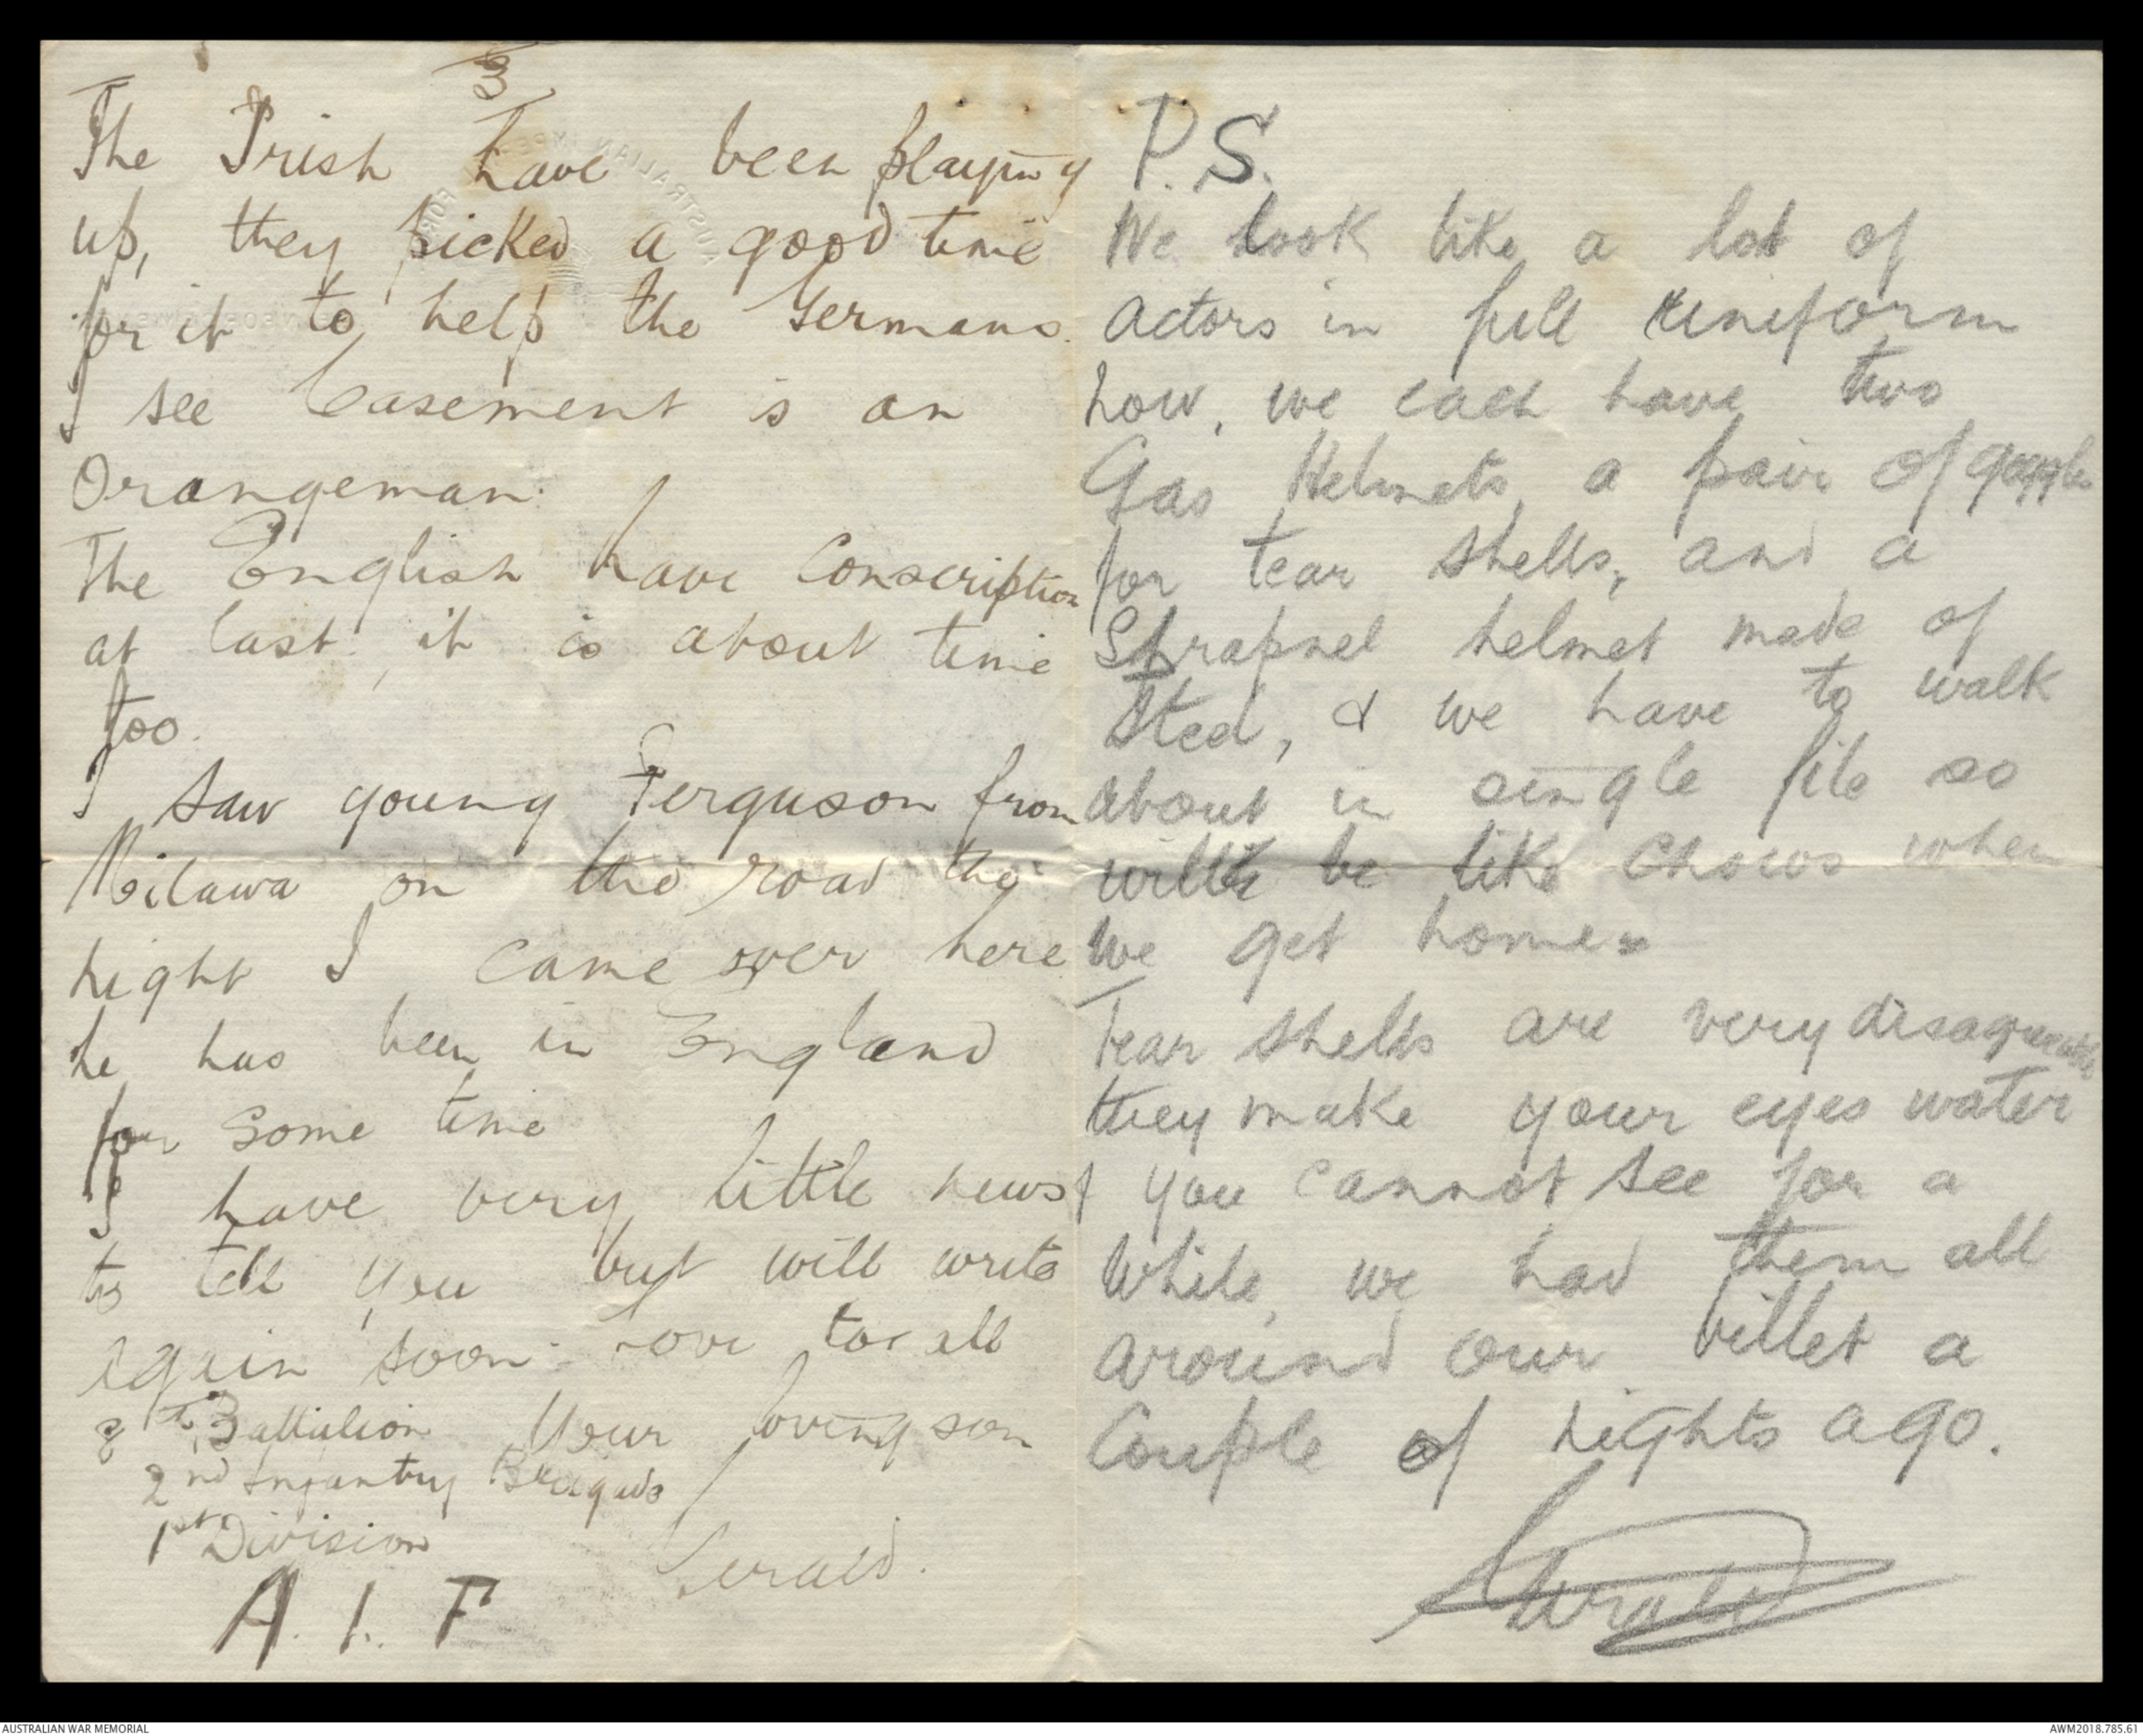 3
The Irish have been playing
up, they picked a good time
for it to help the Germans.
I see Casement is an
Orangeman.
The English have Conscription
at last, it is about time
too.
I saw young Ferguson from
Milawa on the road the
night I came over here
he has been in England
for some time
I have very little news
to tell you but will write
again soon. Love to all
8th Battalion Your loving son
2nd Infantry Brigade
1st Division
Gerald.
A. I. F
P.S.
We look like a lot of
actors in full uniform
now, we each have two
Gas Helmets, a pair of goggles
for tear shells, and a
Shrapnel helmet made of
Steel, & we have to walk
about in single file so
will be like Chows when
we get home.
Tear shells are very disagreeable
they make your eyes water
& you cannot see for a
while, we had them all
around our billet a
Couple of nights ago.
Gerald
AUSTRALIAN WAR MEMORIAL
AWM2018.785.61